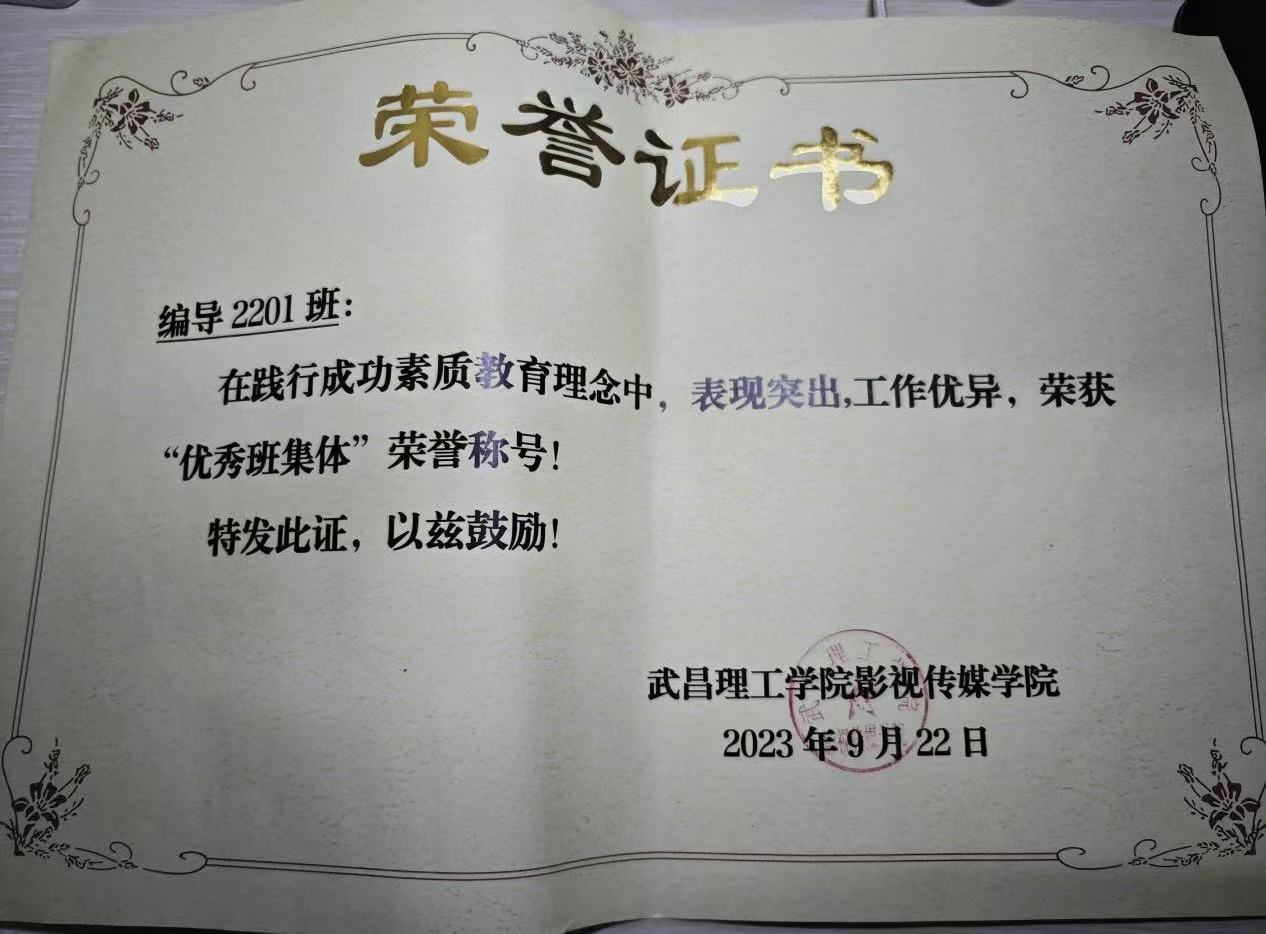 荣誉证书
编导2201班：
在践行成功素质教育理念中，表现突出,工作优异，荣获
“优秀班集体”荣誉称号！
特发此证，以兹鼓励！
武昌理工学院影视传媒学院
2023年9月22日
武昌理工学院